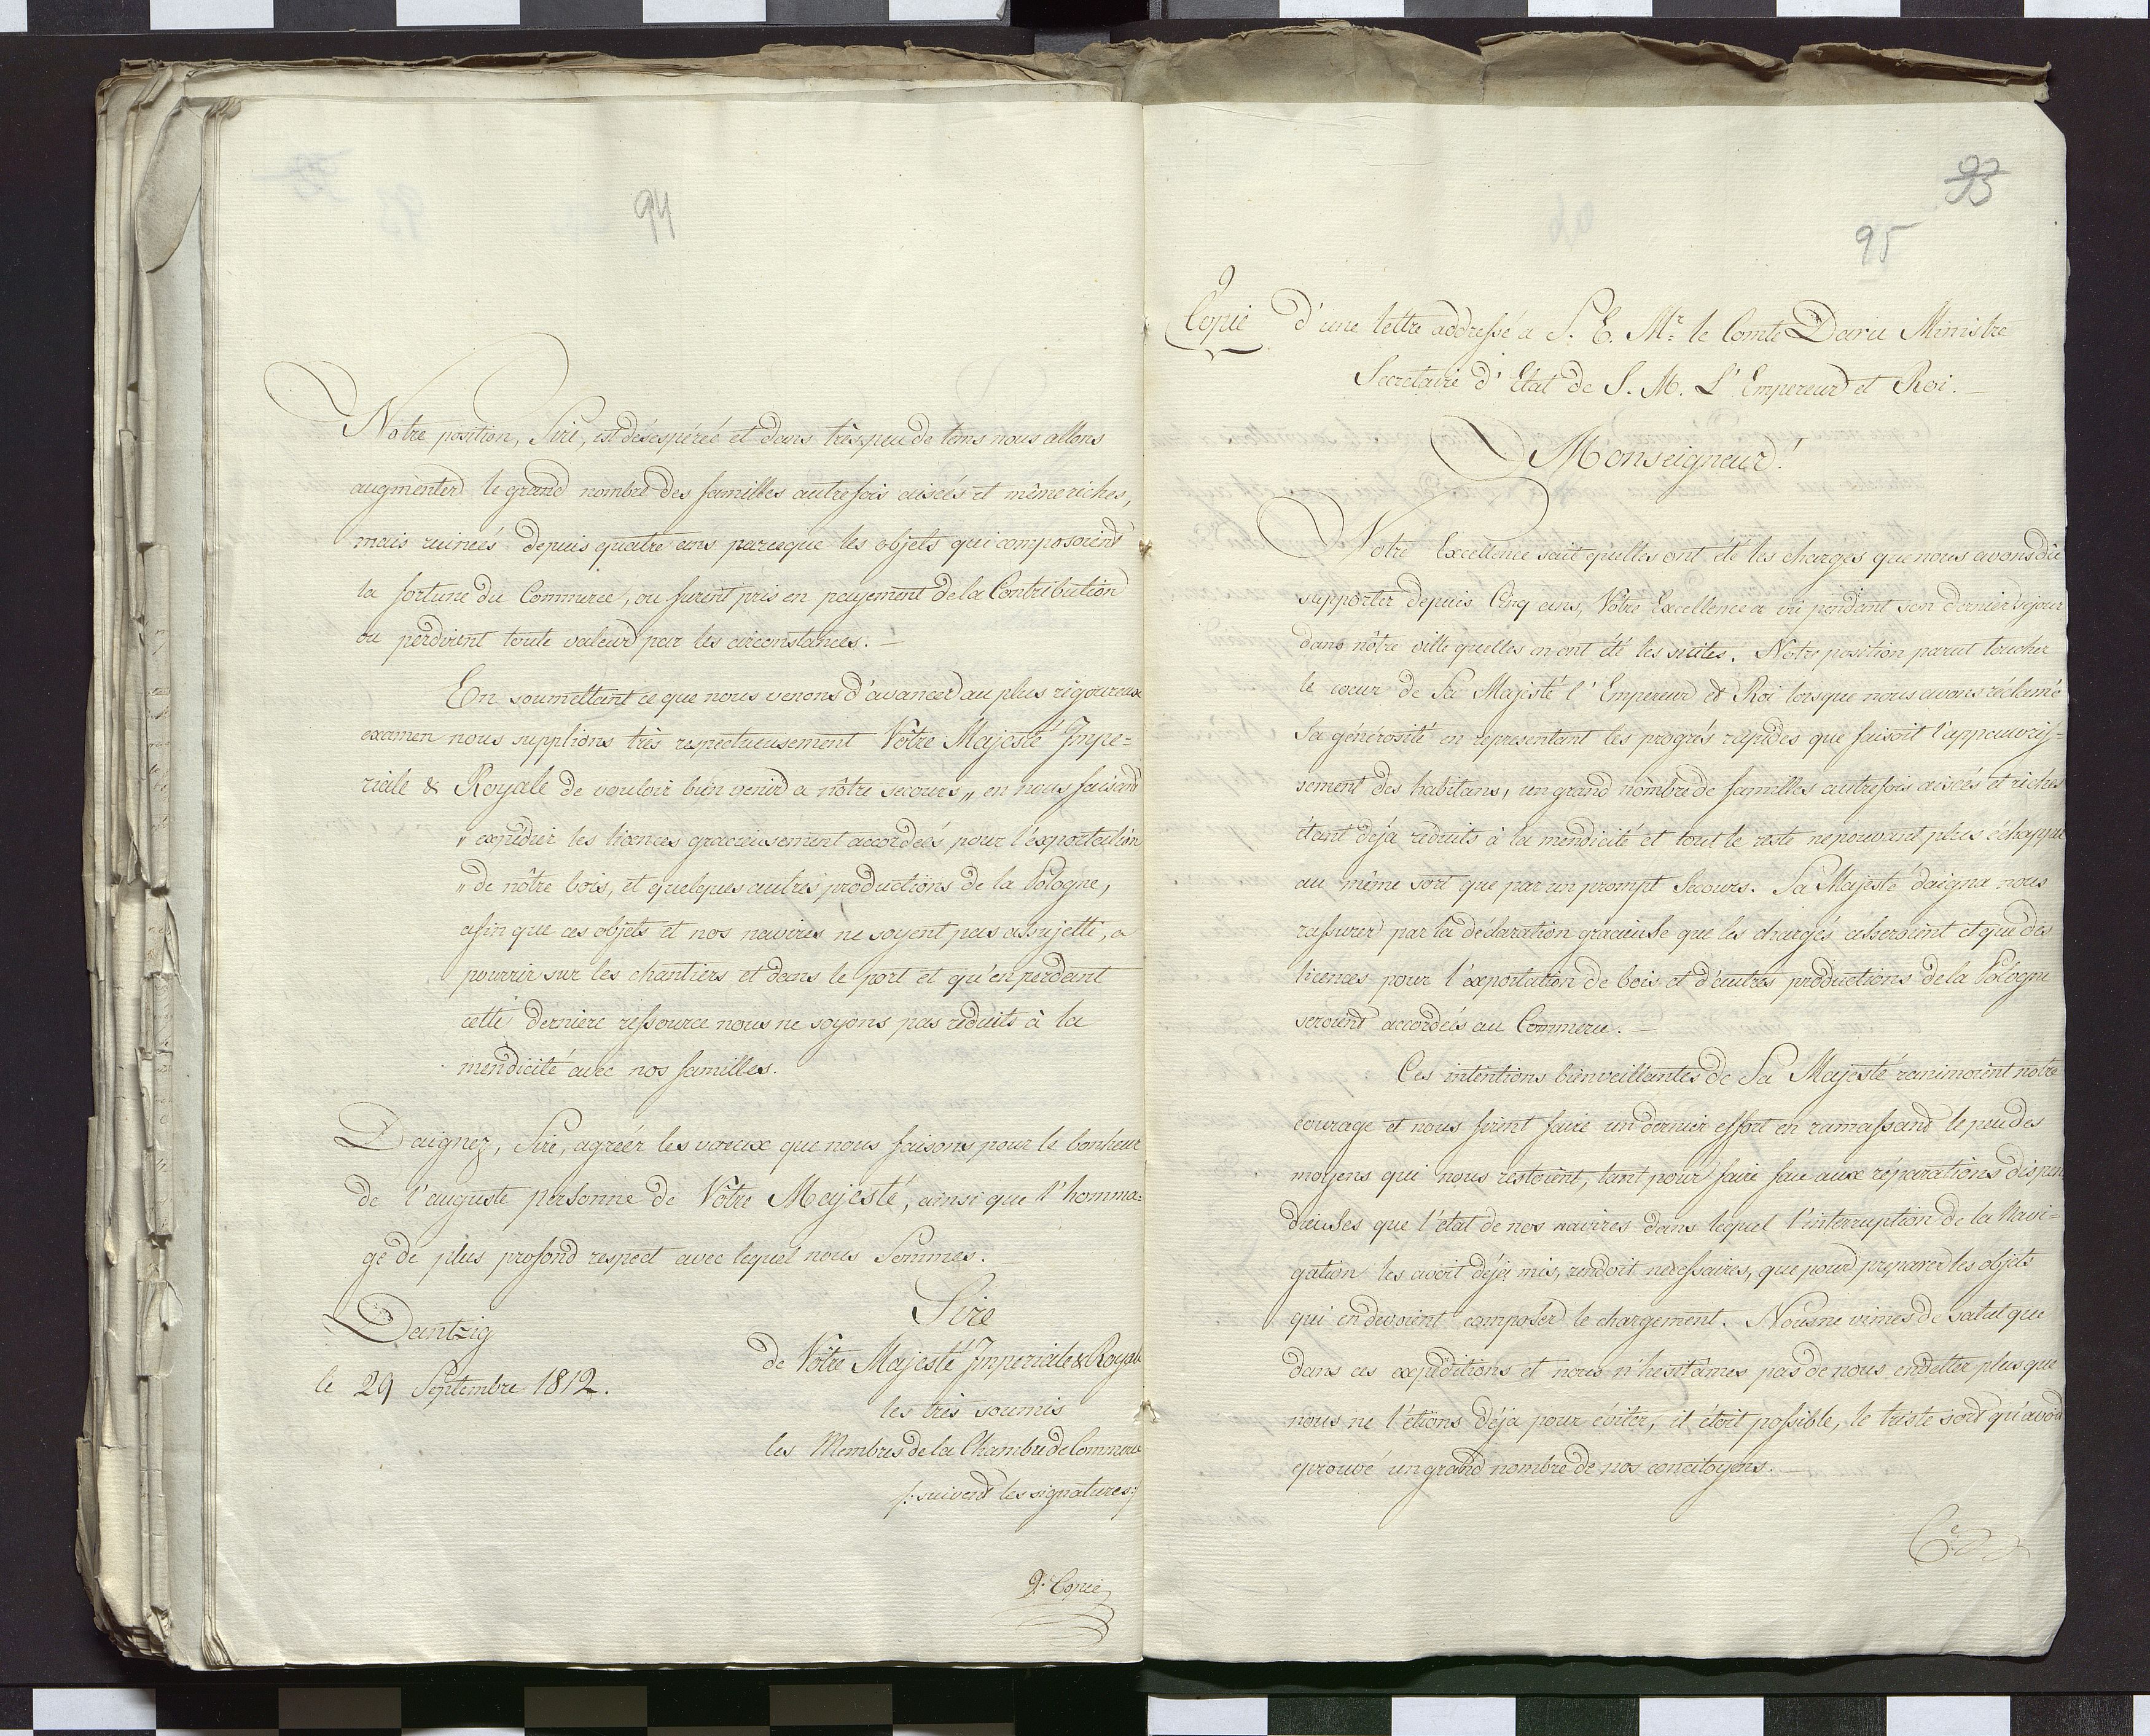 94
Notre position, Sire, est désespérée et dans très peu de tems nous allons
augmenter le grand nombre des familles autrefois aisées et même riches,
mais ruinées depuis quatre ans parceque les objets qui composoient
la fortune du Commerce, ou furent pris en payement de la Contribution
ou perdirent toute valeur par les circonstances. —
En soumettant ce que nous venons d'avancer au plus rigoureux
examen nous supplions très respectueusement Vôtre Majesté Impe=
riale & Royale de vouloir bien venir a nôtre secours „ en nous faisant
„ expédier les licences gracieusement accordées pour l'exportation
„ de nôtre bois, et quelques autres productions de la Pologne,
afin que ces objets et nos navires ne soyent pas assujetti, a
pourrir sur les chantiers et dans le port et qu'en perdant
cette derniere ressource nous ne soyons pas reduits à la
mendicité avec nos familles.
Daignez, Sire, agréer les voeux que nous faisons pour le bonheur
de l'auguste personne de Vôtre Majesté, ainsi que l'homma=
ge de plus profond respect avec lequel nous Sommes.
Sire
Dantzig
de Vôtre Majesté Imperiale & Royale
le 29 Septembre 1812.
les très soumis
les Membres de la Chambre de Commerce
/: suivent les signatures :/
9. Copie
93
95
9
Copie d'une lettre addressé a S. E. Mr. le Comte Daru Ministre
Secretaire d'Etat de S. M. L'Empereur et Roi. —
Monseigneur!
Votre Excellence sait quelles ont été les charges que nous avons dû
supporter depuis Cinq ans, Votre Excellence a vu pendant son dernier sejour
dans nôtre ville quelles en ont été les suites. Notre position parut toucher
le coeur de Sa Majesté l'Empereur et Roi lorsque nous avons réclamé
Sa générosité en representant les progrés rapides que faisoit l'appauvris=
sement des habitans, un grand nombre de familles autrefois aisées et riches
étant déja reduits à la mendicité et tout le reste ne pouvant plus échapper
au même sort que par un prompt Secours. Sa Majesté daigna nous
rassurer par la déclaration gracieuse que les charges cesseroient et que des
licences pour l'exportation de bois et d'autres productions de la Pologne
seroient accordées au Commerce. —
Ces intentions bienveillantes de Sa Majesté ranimoient notre
courage et nous firent faire un dernier effort en ramassant le peu des
moyens qui nous restoient, tant pour faire face aux réparations dispen
dieuses que l'etat de nos navires dans lequel l'interruption de la Navi=
gation les avoit déjà mis, rendoit necessaires, que pour préparer les objets
qui en devoient composer le chargement. Nous ne vimes de salut que
dans ces expéditions et nous n'hesitâmes pas de nous endetter plus que
nous ne l'étions déja pour éviter, il étoit possible, le triste sort qu'avoit
eprouvé un grand nombre de nos concitoyens. —